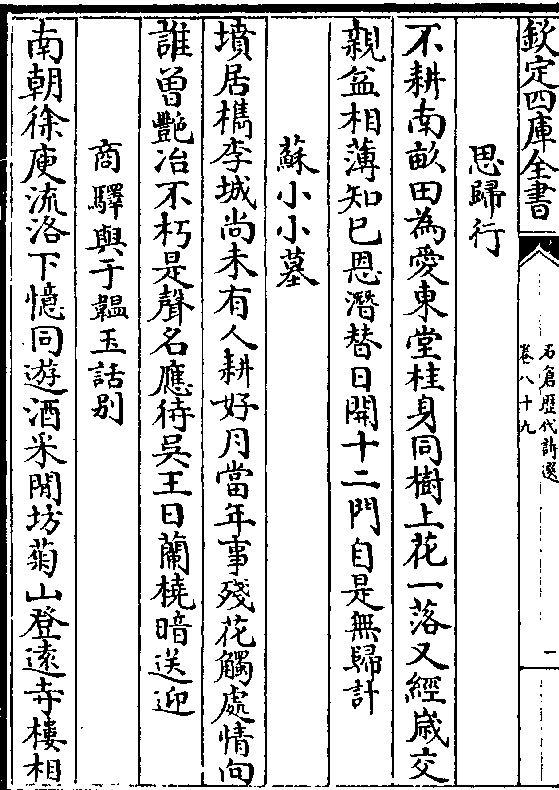 欽定四庫全書
石倉歴代詩選
卷八十九
一
思歸行
不耕南畝田為愛東堂桂身同樹上花一落又經歲交
親益相薄知已恩潛替日開十二門自是無歸計
蘇小小墓
墳居檇李城尚未有人耕好月當年事殘花觸處情向
誰曾艶冶不朽是聲名應待吳王日蘭橈暗送迎
商驛與于韞玉話别
南朝徐庾流洛下憶同遊酒米閒坊菊山登遠寺樓相